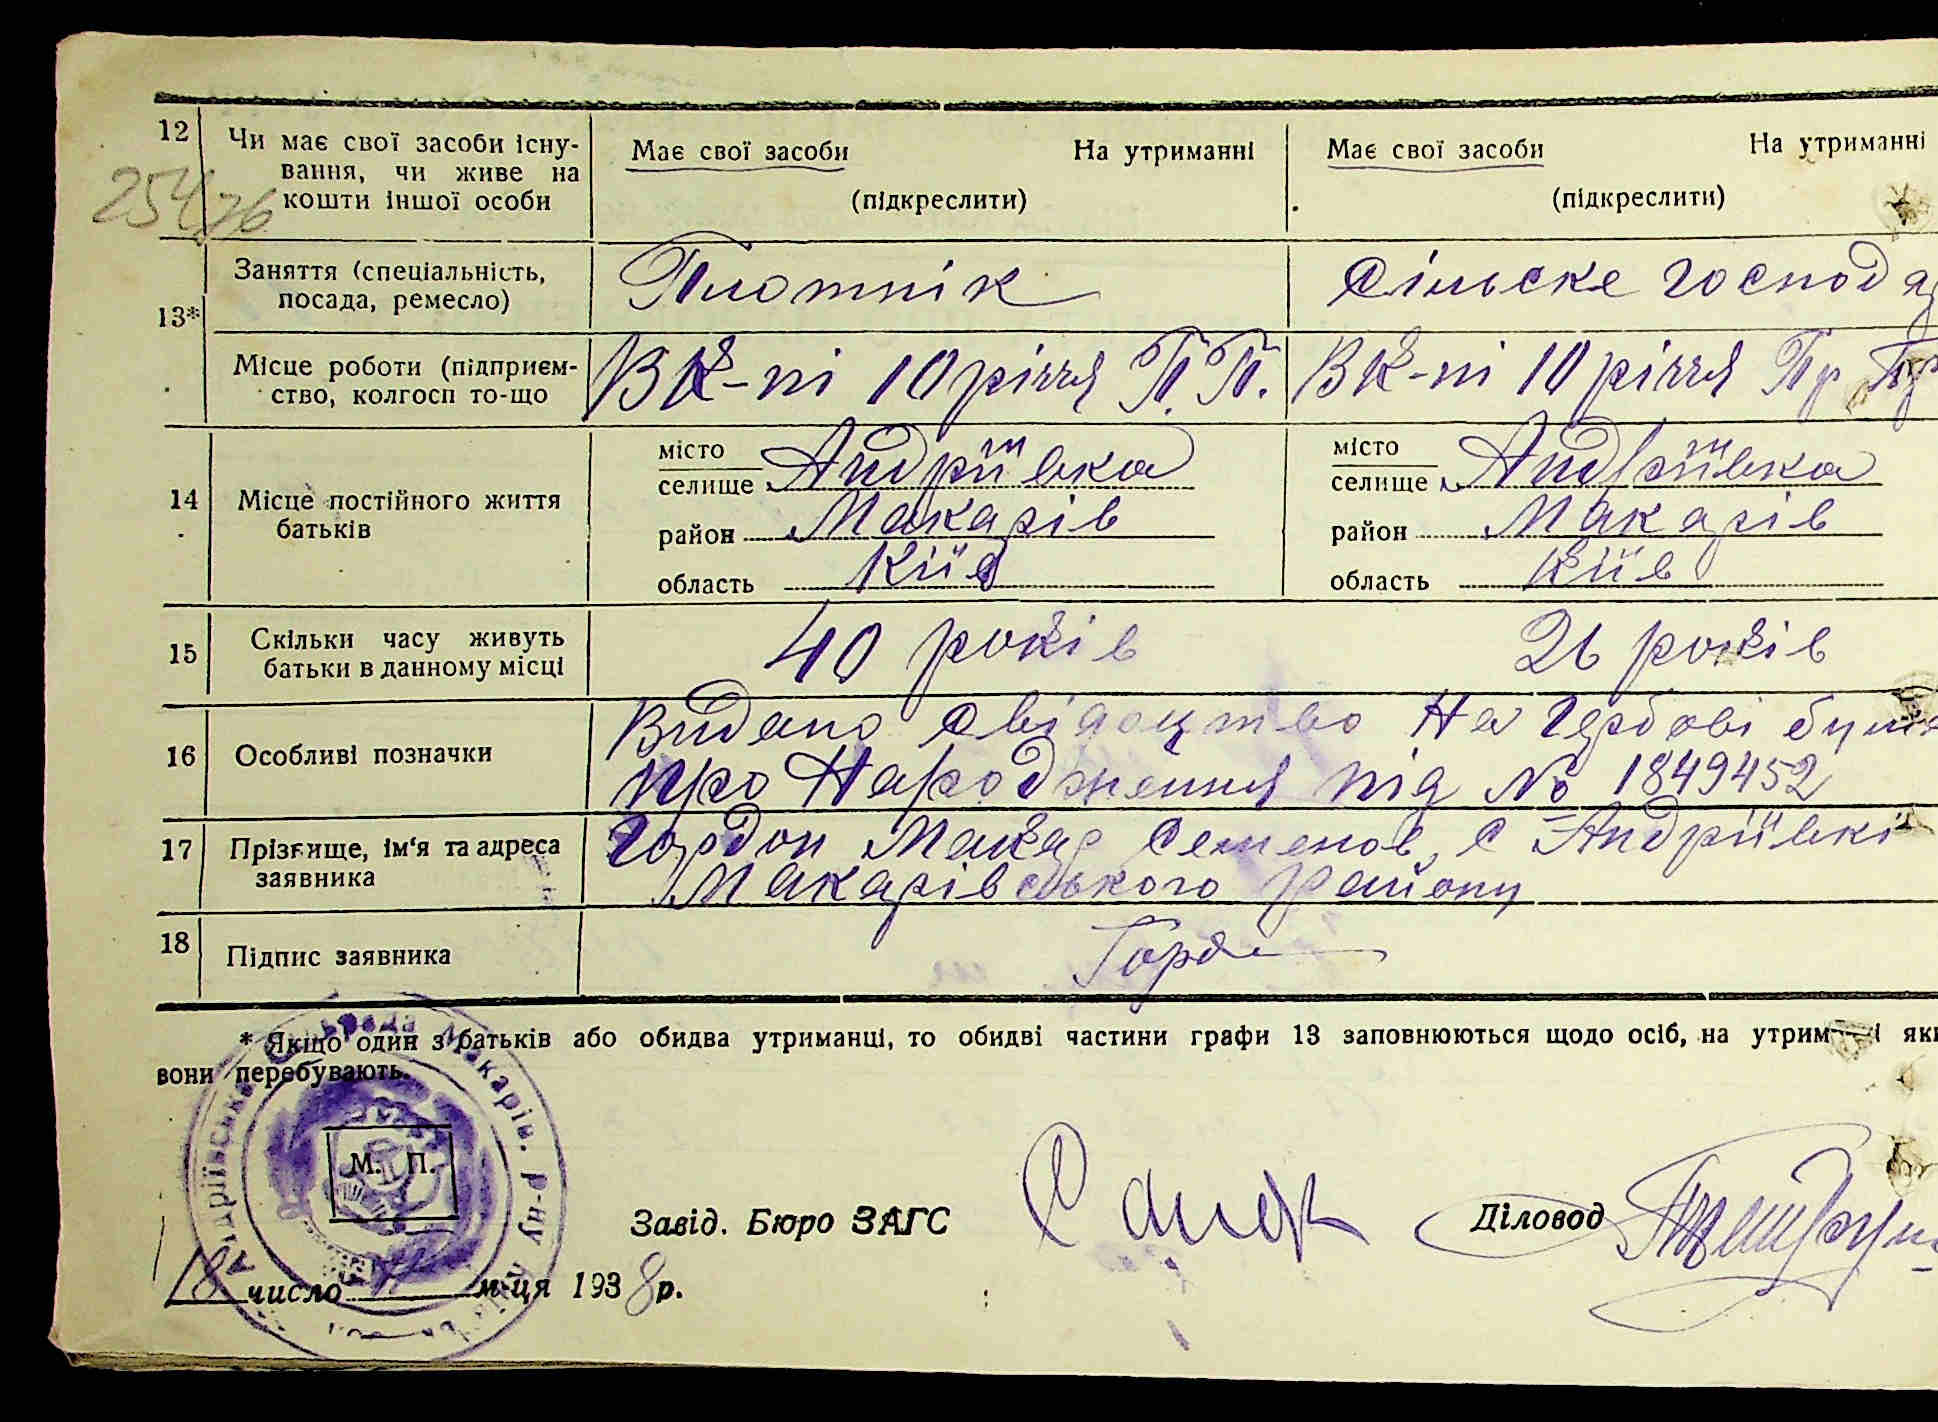 12 Чи має свої засоби існу-
вання, чи живе на
кошти іншої особи
Має свої засоби На утриманні
(підкреслити)
Має свої засоби На утриманні
(підкреслити)
254
76
13*
Заняття (спеціальність,
посада, ремесло)
Плотнік
Сільске господ
Місце роботи (підприєм-
ство, колгосп то-що
В К-пі 10 річчя П. П.
В К-пі 10 річчя Пр
14 Місце постійного життя
батьків
місто
селище Андріївка
район Макарів
область Київ
місто
селище Андріївка
район Макарів
область Київ
15 Скільки часу живуть
батьки в данному місці
40 років
26 років
16 Особливі позначки
Видано Свідоцтво На гербові
про Народження під № 1849452
17 Прізвище, ім'я та адреса
заявника
Гордон Макар Семенов, С Андріївкі
Макарівського району
18 Підпис заявника
Горд
* Якщо один з батьків або обидва утриманці, то обидві частини графи 13 заповнюються щодо осіб, на утрим які
вони перебувають.
Андріївська сільрада Макарів. р-ну
М. П.
Завід. Бюро ЗАГС
Діловод
18 число м-ця 1938 р.